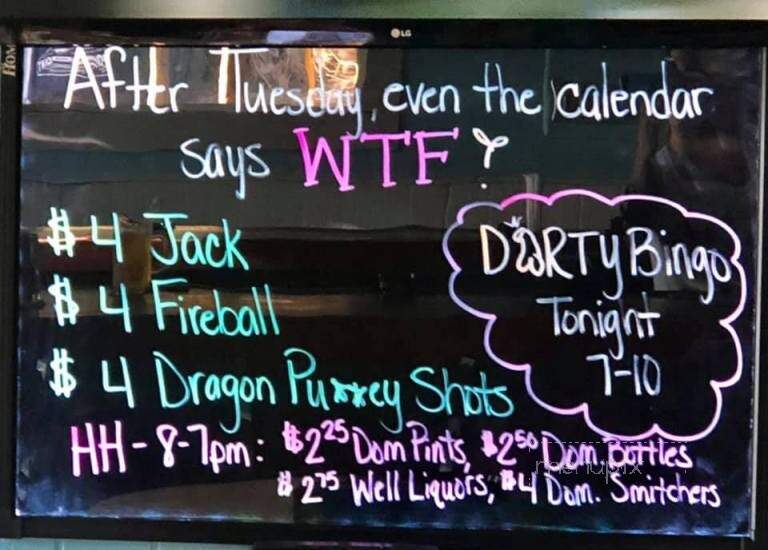 LG
After Tuesday, even the calendar
says WTF?
$4 Jack
$4 Fireball
$4 Dragon Pu**ey Shots
DIRTy Bingo
Tonight
7-10
HH - 8-7pm: $2²⁵ Dom Pints, $2⁵⁰ Dom. Bottles
$2⁷⁵ Well Liquors, $4 Dom. Smitchers
menupix